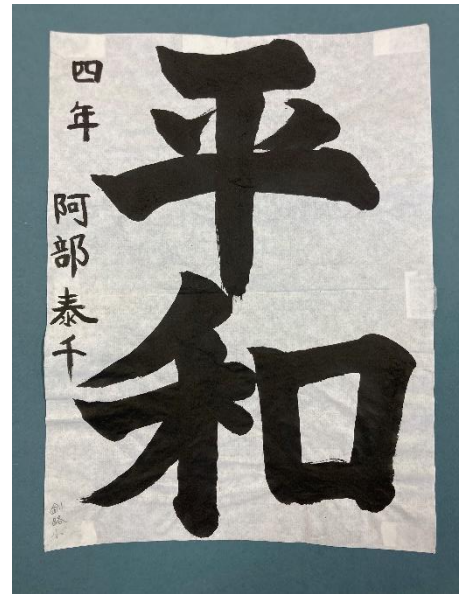 平和
四年 阿部泰千